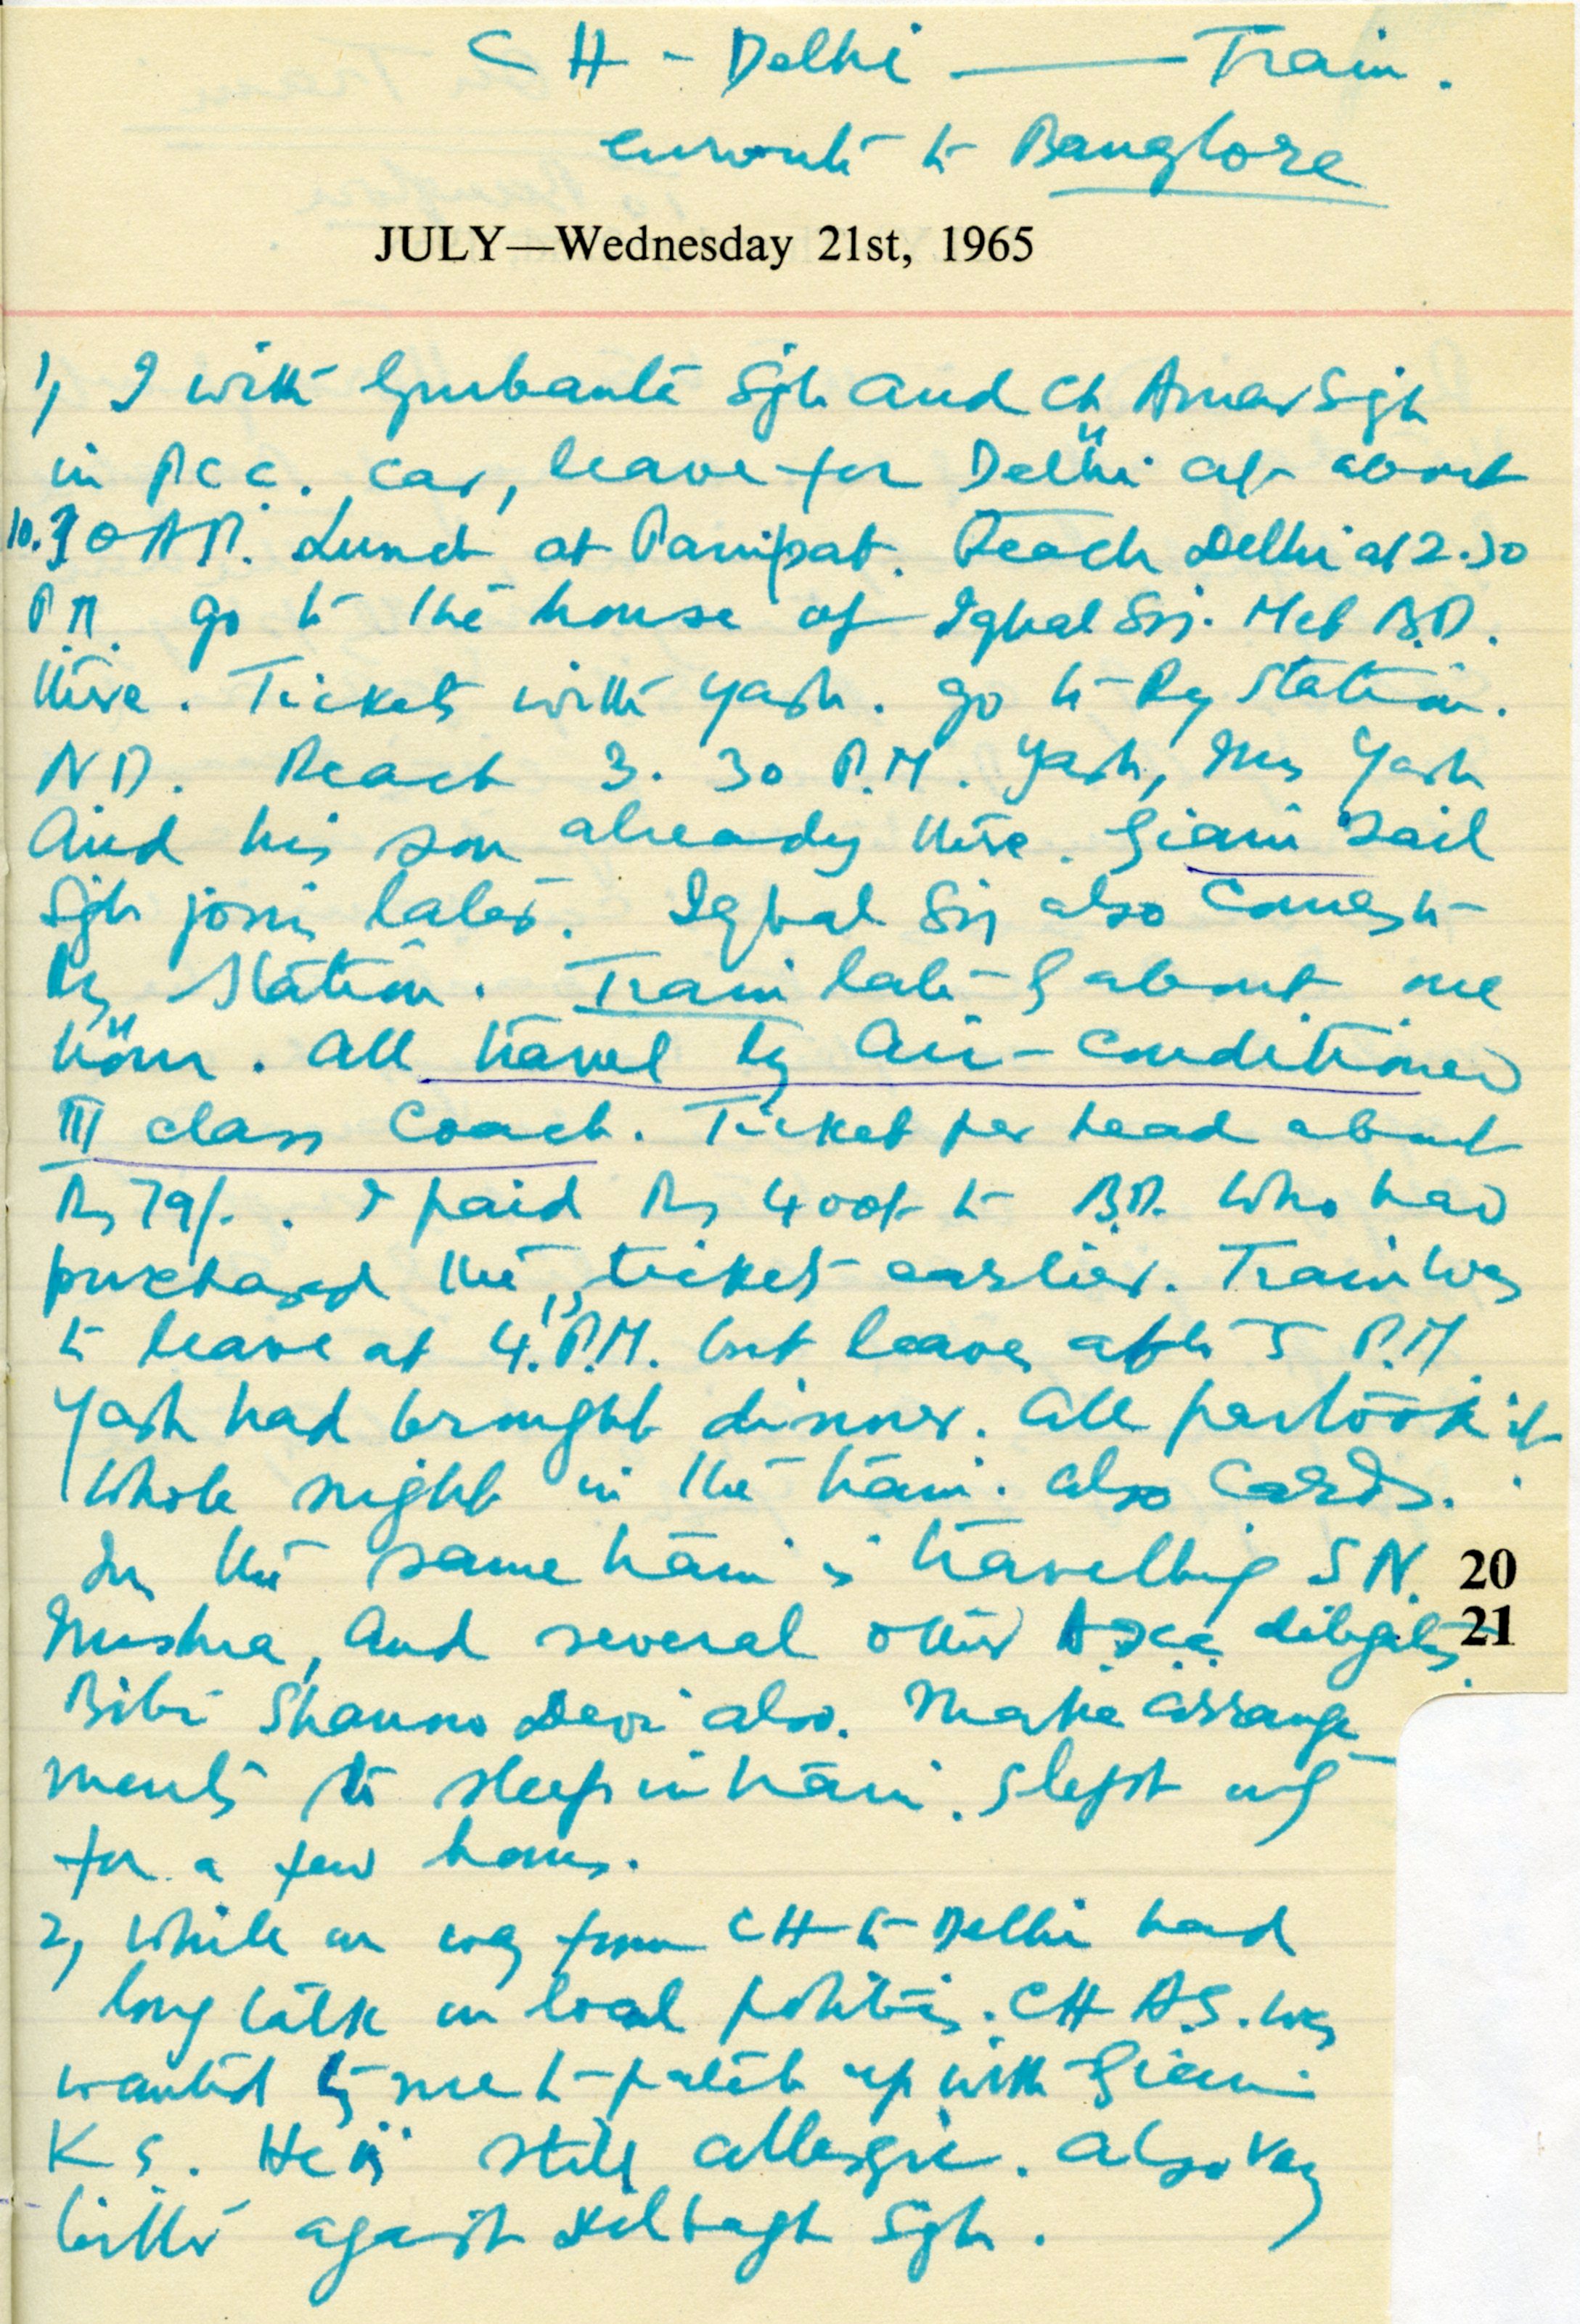 CH - Delhi — Train.
enroute to Banglore
JULY—Wednesday 21st, 1965
1, I with Gurbanta Sgh and Ch Amar Sgh
in P.C.C. car, leave for Delhi at about
10.30 A.M. Lunch at Panipat. Reach Delhi at 2.30
P.M. go to the house of Iqbal Sn. Met B.D.
there. Tickets with Yash. go to Ry Station.
N D. Reach 3.30 P.M. Yash, Mrs Yash
And his son already there. Giani Zail
Sgh joins later. Iqbal Sn also comes to
Ry Station. Train late by about one
hour. All travel by Air-conditioned
III class Coach. Ticket per head about
Rs 79/-. I paid Rs 400/- to B.D. who had
purchased the tickets earlier. Train was
to leave at 4. P.M. but leaves after 5 P.M.
Yash had brought dinner. All partook it.
Whole night in the train. also Cards.
In the same train is travelling S N.
Mishra, And several other A.I.C.C. deligates.
Bibi Shanno Devi also. Make arrange
ments to sleep in train. Slept only
for a few hours.
2, While on way from CH to Delhi had
long talk on local politics. CH A.S. was
wanted by me to patch up with Giani
K S. He is still allergic. Also very
bitter against Dilbagh Sgh.
20
21